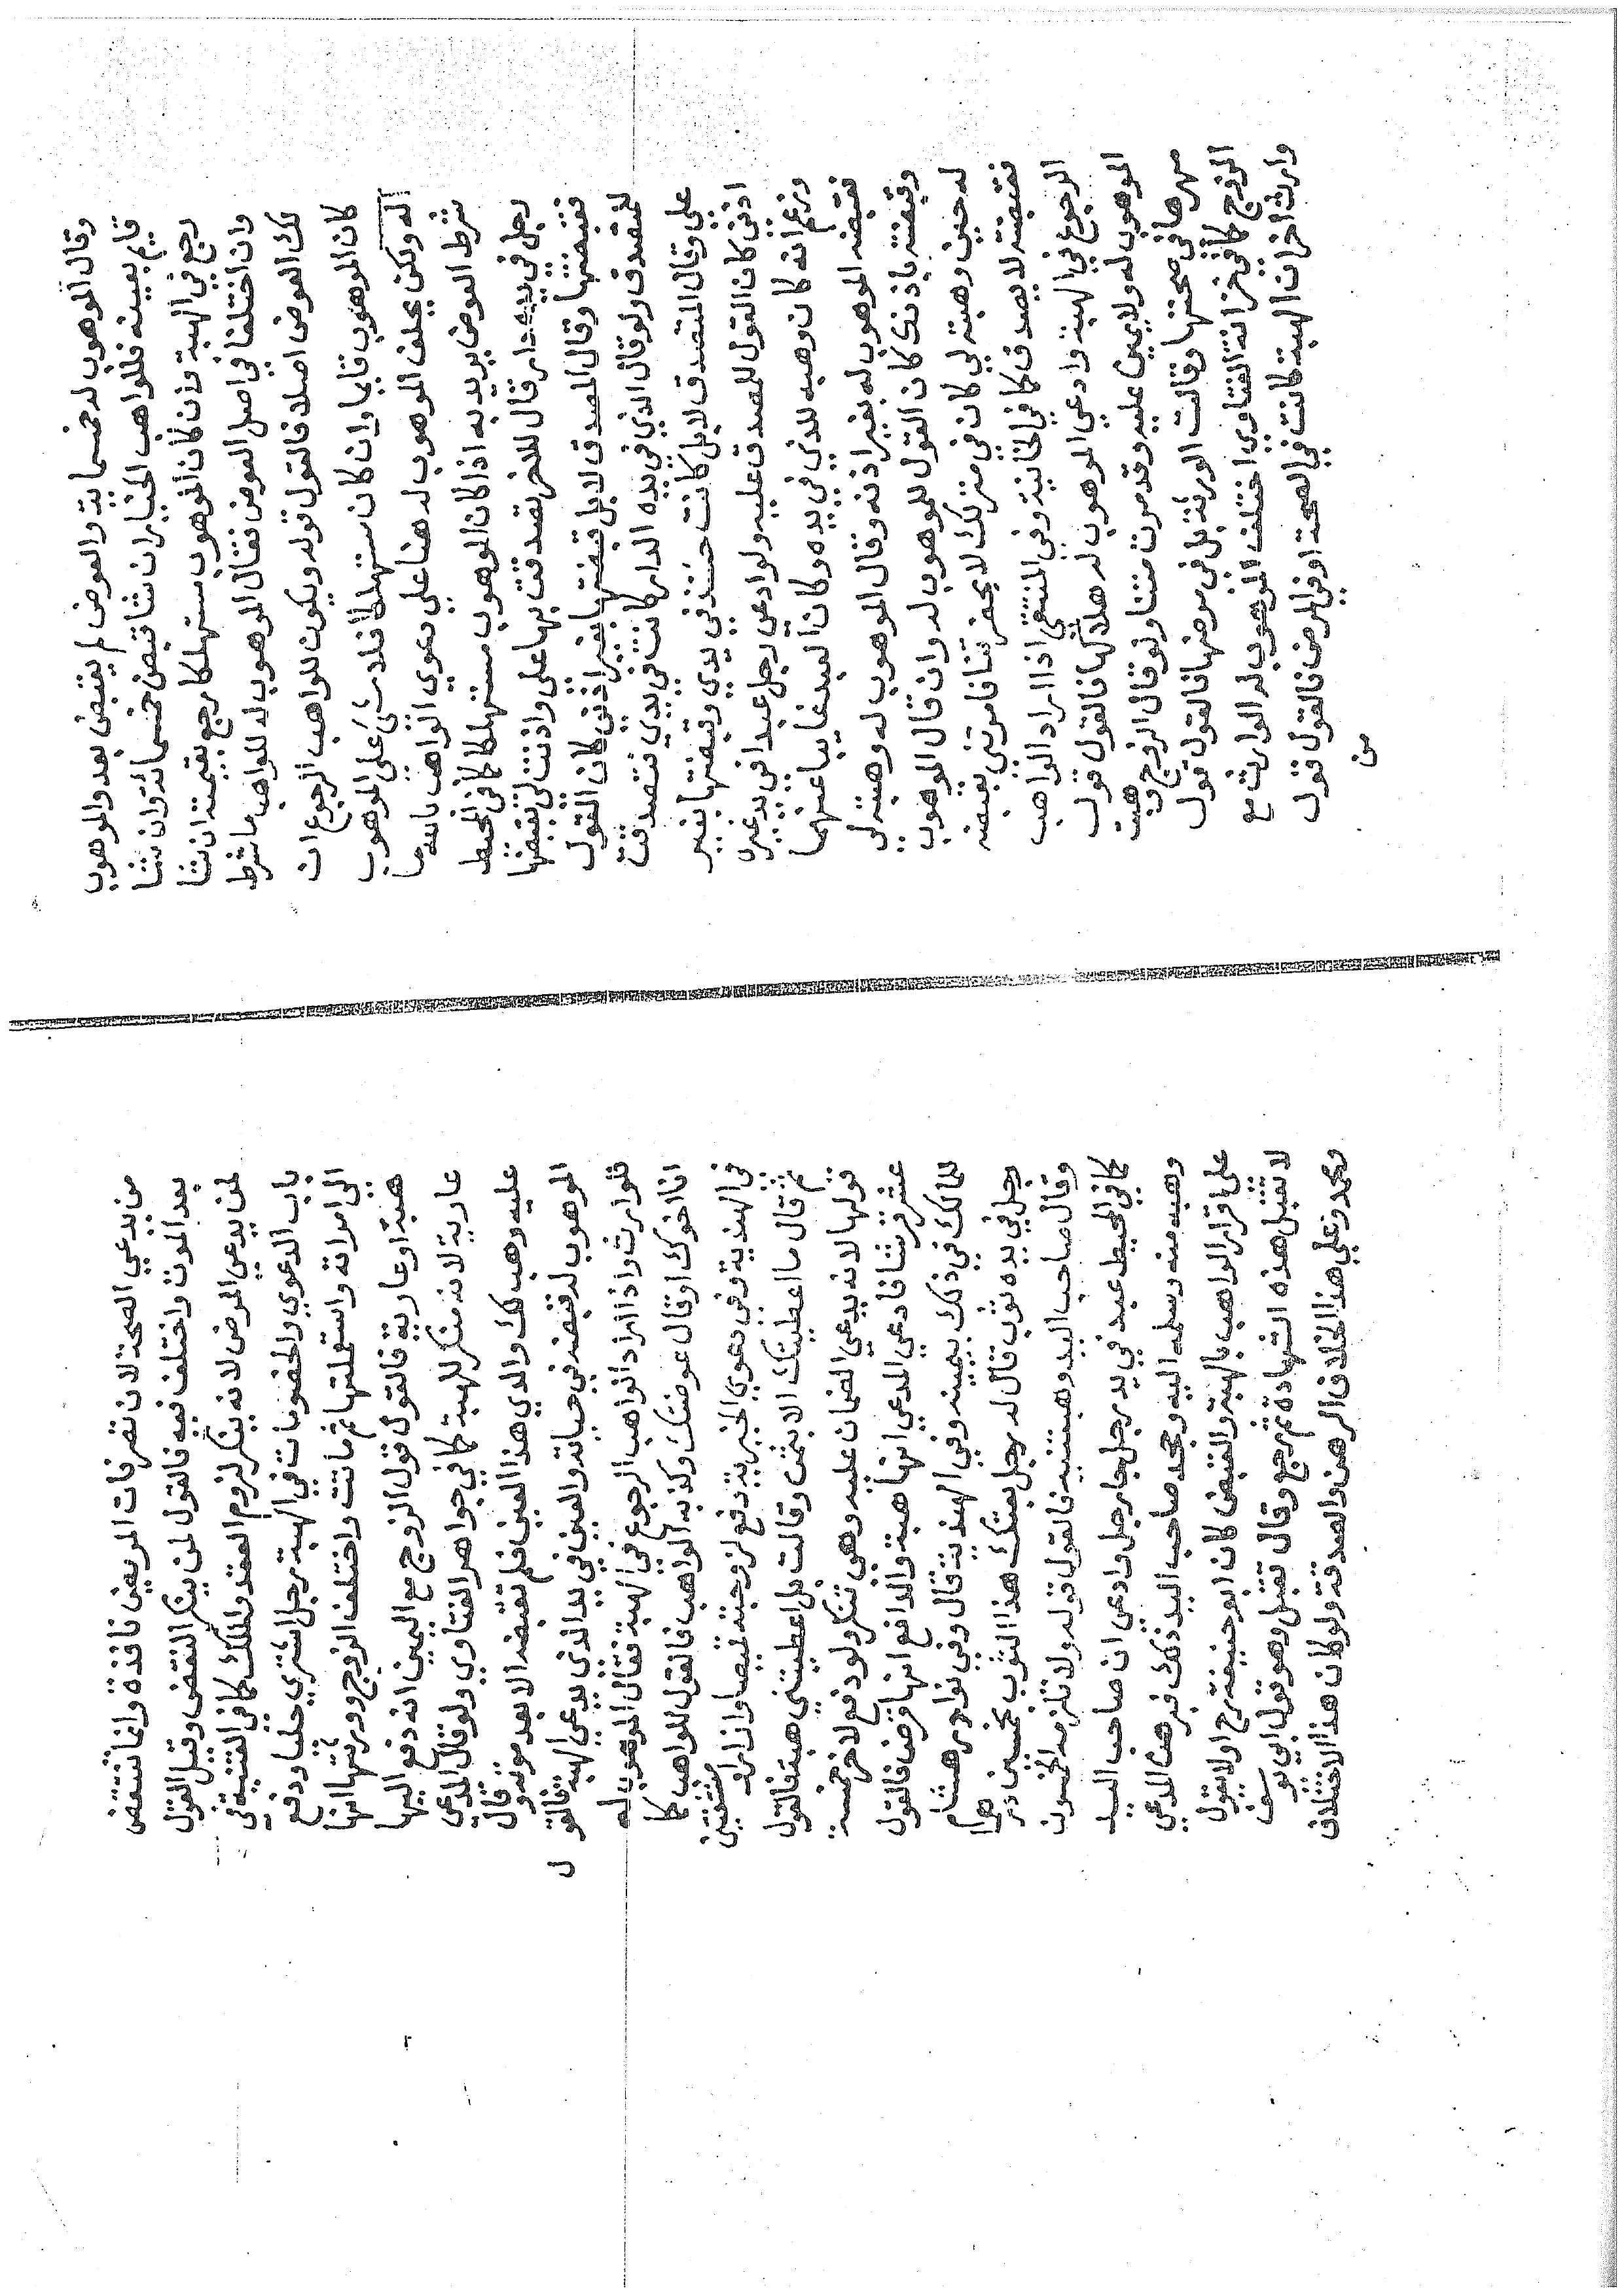 وقال الموهوب له خمسماية والعوض لم يقبض بعد والموهوب
قايم بعينه فللواهب الخيار ان شا قبض خمسمائة وان شا
رجع في الهبة وان كان الموهوب مستهلكا رجع بقيمته ان شا
وان اختلفا في اصل العوض فقال الموهوب له للواهب ما شرط
لك العوض اصلا فالقول قوله ويكون للواهب الرجوع ان
كان الموهوب قايما وان كان مستهلكا فلا شي على الموهوب
له ولكن يحلف الموهوب له هنا على دعوي الواهب بالله ما
شرط العوض يريد به اذا كان الموهوب مستهلكا كما في المحيط
رجل في يده دار قال للاخر تصدقت بها علي واذنت لي بقبضها
فقبضتها وقال المصدق لا بل قبضتها بغير اذني كان القول
للمتصدق ولو قال الذي في يده الدار كانت في يدي فتصدقت
علي وقال المتصدق لا بل كانت في يدي وقبضتها بغير
اذني كان القول للمصدق عليه ولو ادعي رجل عبدا في يد غيره
وزعم انه كان وهبه للذي في يده وكان العبد غايبا عنهما
فقبضه الموهوب له بغير اذنه وقال الموهوب له وهبته لي
وقبضته باذنك كان القول للموهوب له وان قال الموهوب
له حين وهبته لي كان في منزلك لا يحضرتنا فامرتني بقبضه
فقبضته لا يصدق كما في الخانية وفي المنتقى اذا اراد الواهب
الرجوع في الهبة وادعي الموهوب له هلاكها فالقول قول
الموهوب له ولا يمين عليه وقد مرت متنا ولو قال الزوج وهبت
مهرها في صحتها وقالت الورثة بل في مرضها فالقول قول
الزوج كما في خزانة الفتاوي اختلف الموهوب له الوارث مع
وارث اخر ان الهبة كانت في الصحة او في المرض فالقول قول
من
من يدعي الصحة لان تصرفات المريض نافذة وانما تنتقض
بعد الموت واختلف فيه فالقول لمن ينكر النقض وقيل القول
لمن يدعي المرض لانه ينكر لزوم العقد والملك كما في القنية في
باب الدعوي والخصومات في الهبة رجل اشتري حليا ودفع
الى امراته واستعملتها ثم ماتت واختلف الزوج وورثتها انها
هبة او عارية فالقول قول الزوج مع اليمين انه دفع اليها
عارية لانه منكر للهبة كما في جواهر الفتاوي ولو قال المدعي
عليه وهب لك والدي هذا العين فلم تقبضه الا بعد موته وقال
الموهوب له قبضته في حياته والعين في يد الذي يدعي الهبة فالقول
للوارث واذا اراد الواهب الرجوع في الهبة فقال الموهوب له
انا اخوك او قال عوضتك وكذبه الواهب فالقول للواهب كما
في الهندية وفي دعوي الخيرية دفع لزوجته قميصا وازارو
ثم قال ما اعطيتك الا بثمن وقالت بل اعطيتني هبة فالقول
قولها لانه يدعي الضمان عليه وهي تنكر ولو دفع لاخر خمسة
عشر قرشا فادعي المدعي انها هبة والدافع انها قرض فالقول
للمالك في ذلك بيمينه وفي الهندية قال وفي نوادر هشام
رجل في يده ثوب قال له رجل بعتك هذا الثوب بخمسين درهما
وقال صاحب اليد وهبتنيه فالقول قوله ولا تلزمه الخمسون
كما في المحيط عبد في يد رجل جا رجل وادعي ان صاحب اليد
وهبه منه وسلمه اليه وجحد صاحب اليد ذلك فبرهن المدعي
على اقرار الواهب بالهبة والقبض كان ابو حنيفة رح اولا يقول
لا تقبل هذه الشهادة ثم رجع وقال تقبل وهو قول ابي يوسف
ومحمد وعلي هذا الخلاف الرهن والصدقة ولو كان هذا الاختلاف